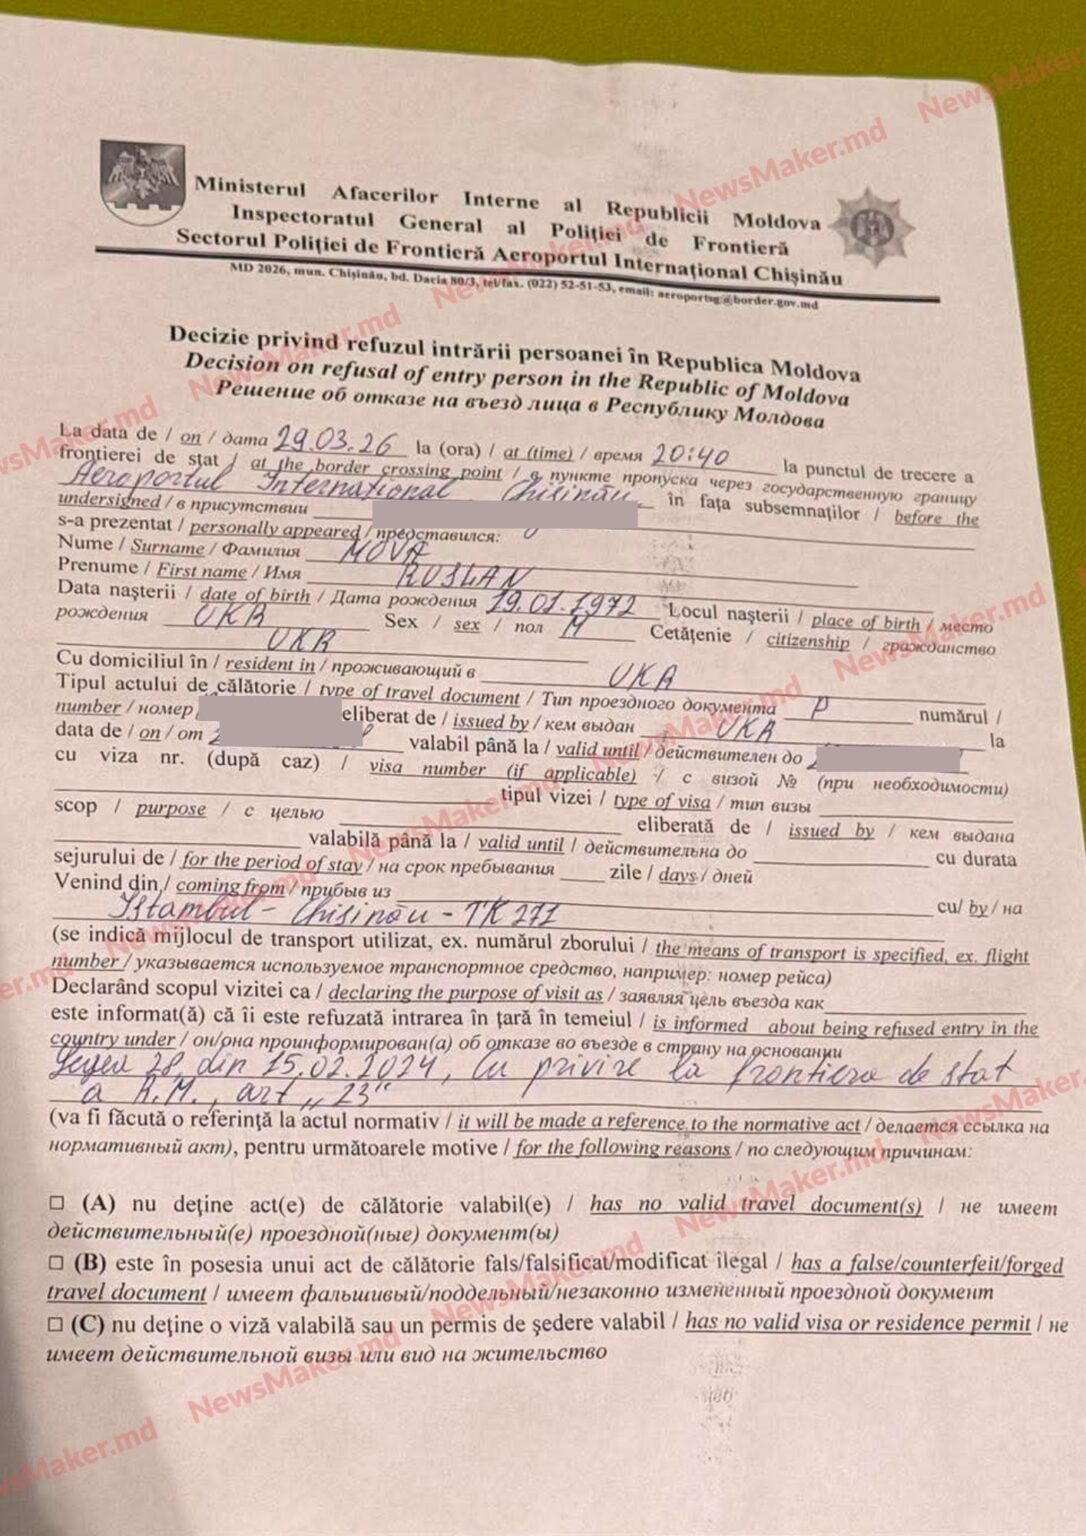 Ministerul Afacerilor Interne al Republicii Moldova
Inspectoratul General al Poliției de Frontieră
Sectorul Poliției de Frontieră Aeroportul Internațional Chișinău
MD 2026, mun. Chișinău, bd. Dacia 80/3, tel/fax. (022) 52-51-53, email: aeroportsg@border.gov.md
Decizie privind refuzul intrării persoanei în Republica Moldova
Decision on refusal of entry person in the Republic of Moldova
Решение об отказе на въезд лица в Республику Молдова
La data de / on / дата 29.03.26 la (ora) / at (time) / время 20:40 la punctul de trecere a
frontierei de stat / at the border crossing point / в пункте пропуска через государственную границу
Aeroportul Internațional Chișinău în fața subsemnaților / before the
undersigned / в присутствии
s-a prezentat / personally appeared / представился:
Nume / Surname / Фамилия MOVA
Prenume / First name / Имя RUSLAN
Data nașterii / date of birth / Дата рождения 19.01.1972 Locul nașterii / place of birth / место
рождения UKR Sex / sex / пол M Cetățenie / citizenship / гражданство
UKR
Cu domiciliul în / resident in / проживающий в UKR
Tipul actului de călătorie / type of travel document / Тип проездного документа P numărul /
number / номер eliberat de / issued by / кем выдан UKR la
data de / on / от valabil până la / valid until / действителен до
cu viza nr. (după caz) / visa number (if applicable) / с визой № (при необходимости)
tipul vizei / type of visa / тип визы
scop / purpose / с целью eliberată de / issued by / кем выдана
valabilă până la / valid until / действительна до cu durata
sejurului de / for the period of stay / на срок пребывания zile / days / дней
Venind din / coming from / прибыв из cu/ by / на
Istambul - Chișinău - TK 271
(se indică mijlocul de transport utilizat, ex. numărul zborului / the means of transport is specified, ex. flight
number / указывается используемое транспортное средство, например: номер рейса)
Declarând scopul vizitei ca / declaring the purpose of visit as / заявляя цель въезда как
este informat(ă) că îi este refuzată intrarea în țară în temeiul / is informed about being refused entry in the
country under / он/она проинформирован(а) об отказе во въезде в страну на основании
Legea 28 din 15.02.2024, Cu privire la frontiera de stat
a R.M., art „13“
(va fi făcută o referință la actul normativ / it will be made a reference to the normative act / делается ссылка на
нормативный акт), pentru următoarele motive / for the following reasons / по следующим причинам:
☐ (A) nu deține act(e) de călătorie valabil(e) / has no valid travel document(s) / не имеет
действительный(е) проездной(ные) документ(ы)
☐ (B) este în posesia unui act de călătorie fals/falsificat/modificat ilegal / has a false/counterfeit/forged
travel document / имеет фальшивый/поддельный/незаконно измененный проездной документ
☐ (C) nu deține o viză valabilă sau un permis de ședere valabil / has no valid visa or residence permit / не
имеет действительной визы или вид на жительство
NewsMaker.md